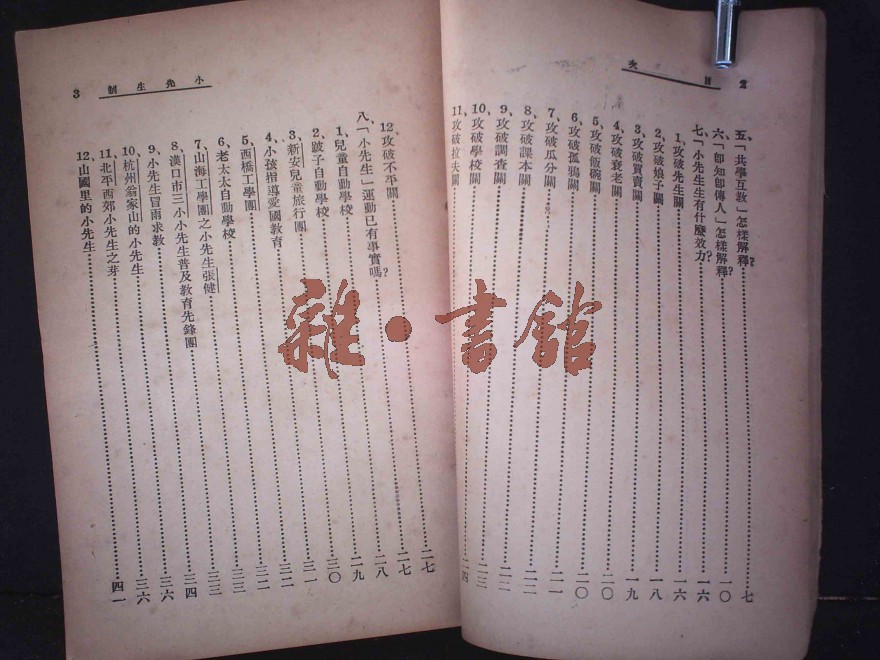 目次 2
五、「共學互敎」怎樣解釋?……七
六、「卽知卽傳人」怎樣解釋?……一〇
七、「小先生生有什麼效力?……一六
1、攻破先生關……一六
2、攻破娘子關……一八
3、攻破買賣關……一九
4、攻破衰老關……二〇
5、攻破飯碗關……二〇
6、攻破孤鴉關……二〇
7、攻破瓜分關……二一
8、攻破課本關……二二
9、攻破調查關……二二
10、攻破學校關……二三
11、攻破拉夫關……二四
小先生制 3
12、攻破不平關……二七
八、「小先生」運動已有事實嗎?……二七
1、兒童自動學校……二八
2、跛子自動學校……二九
3、新安兒童旅行團……三〇
4、小孩指導愛國敎育……三一
5、西橋工學團……三二
6、老太太自動學校……三三
7、山海工學團之小先生張健……三三
8、漢口市三小小先生普及敎育先鋒團……三四
9、小先生冒雨求敎……三六
10、杭州翁家山的小先生……三六
11、北平西郊小先生之芽
12、山國里的小先生……四一
雜·書館